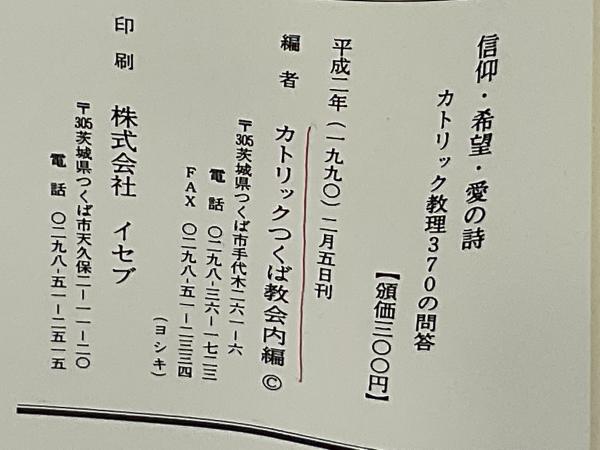 信仰・希望・愛の詩
カトリック教理370の問答
【頒価三〇〇円】
平成二年(一九九〇)二月五日刊
編者 カトリックつくば教会内編 ©
〒305茨城県つくば市手代木二六一-六
電話 〇二九八-三六-一七二三
FAX 〇二九八-五一-二三三四
(ヨシキ)
印刷 株式会社 イセブ
〒305茨城県つくば市天久保二-一一-二〇
電話 〇二九八-五一-二五一五